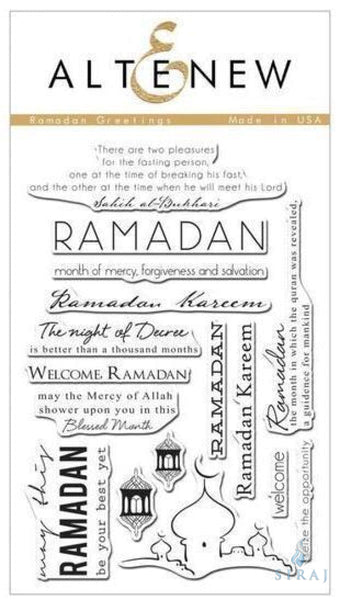 ALTENEW
Ramadan Greetings Made in USA
There are two pleasures
for the fasting person,
one at the time of breaking his fast,
and the other at the time when he will meet his Lord
Sahih al-Bukhari
RAMADAN
month of mercy, forgiveness and salvation
Ramadan Kareem
The night of Decree
is better than a thousand months
WELCOME RAMADAN
may the Mercy of Allah
shower upon you in this
Blessed Month
RAMADAN
Ramadan Kareem
Ramadan
the month in which the quran was revealed,
a guidence for mankind
may this
RAMADAN
be your best yet
welcome
seize the opportunity
SIRAJ